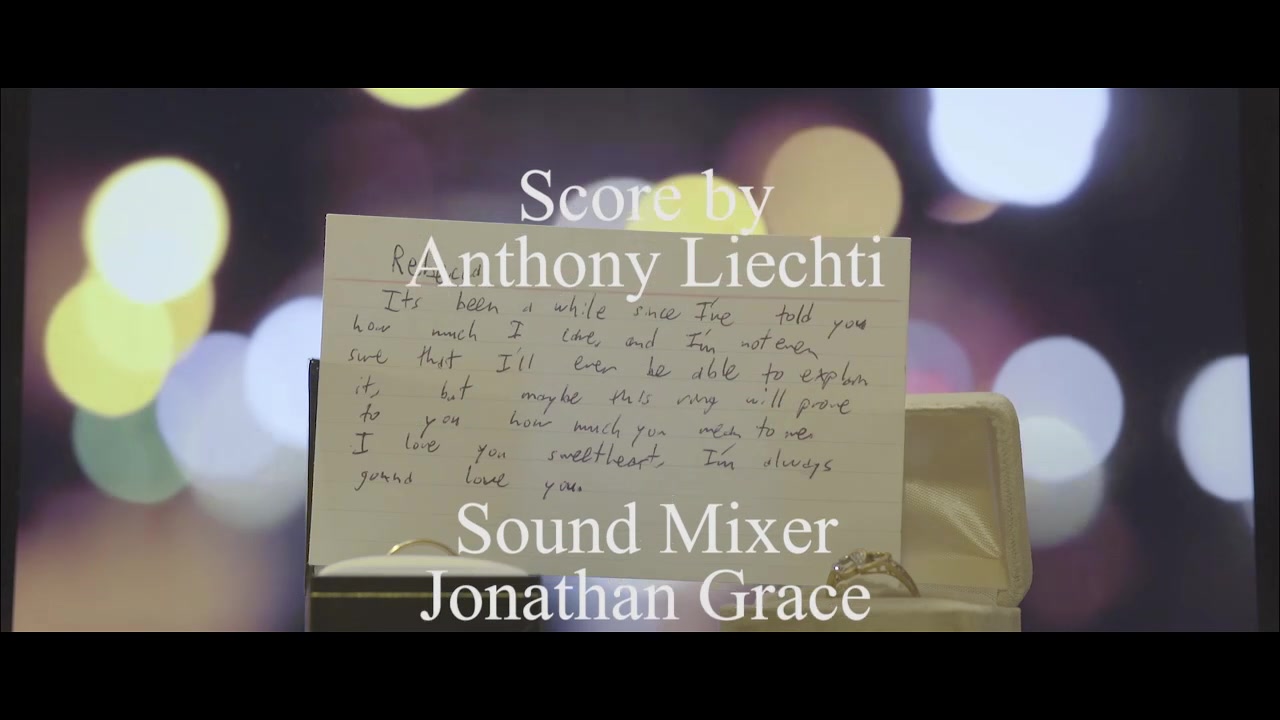 Score by
Anthony Liechti
Its been a while since I've told you
how much I love, and I'm not even
sure that I'll ever be able to explain
it, but maybe this ring will prove
to you how much you mean to me.
I love you sweetheart, I'm always
gunna love you.
Sound Mixer
Jonathan Grace